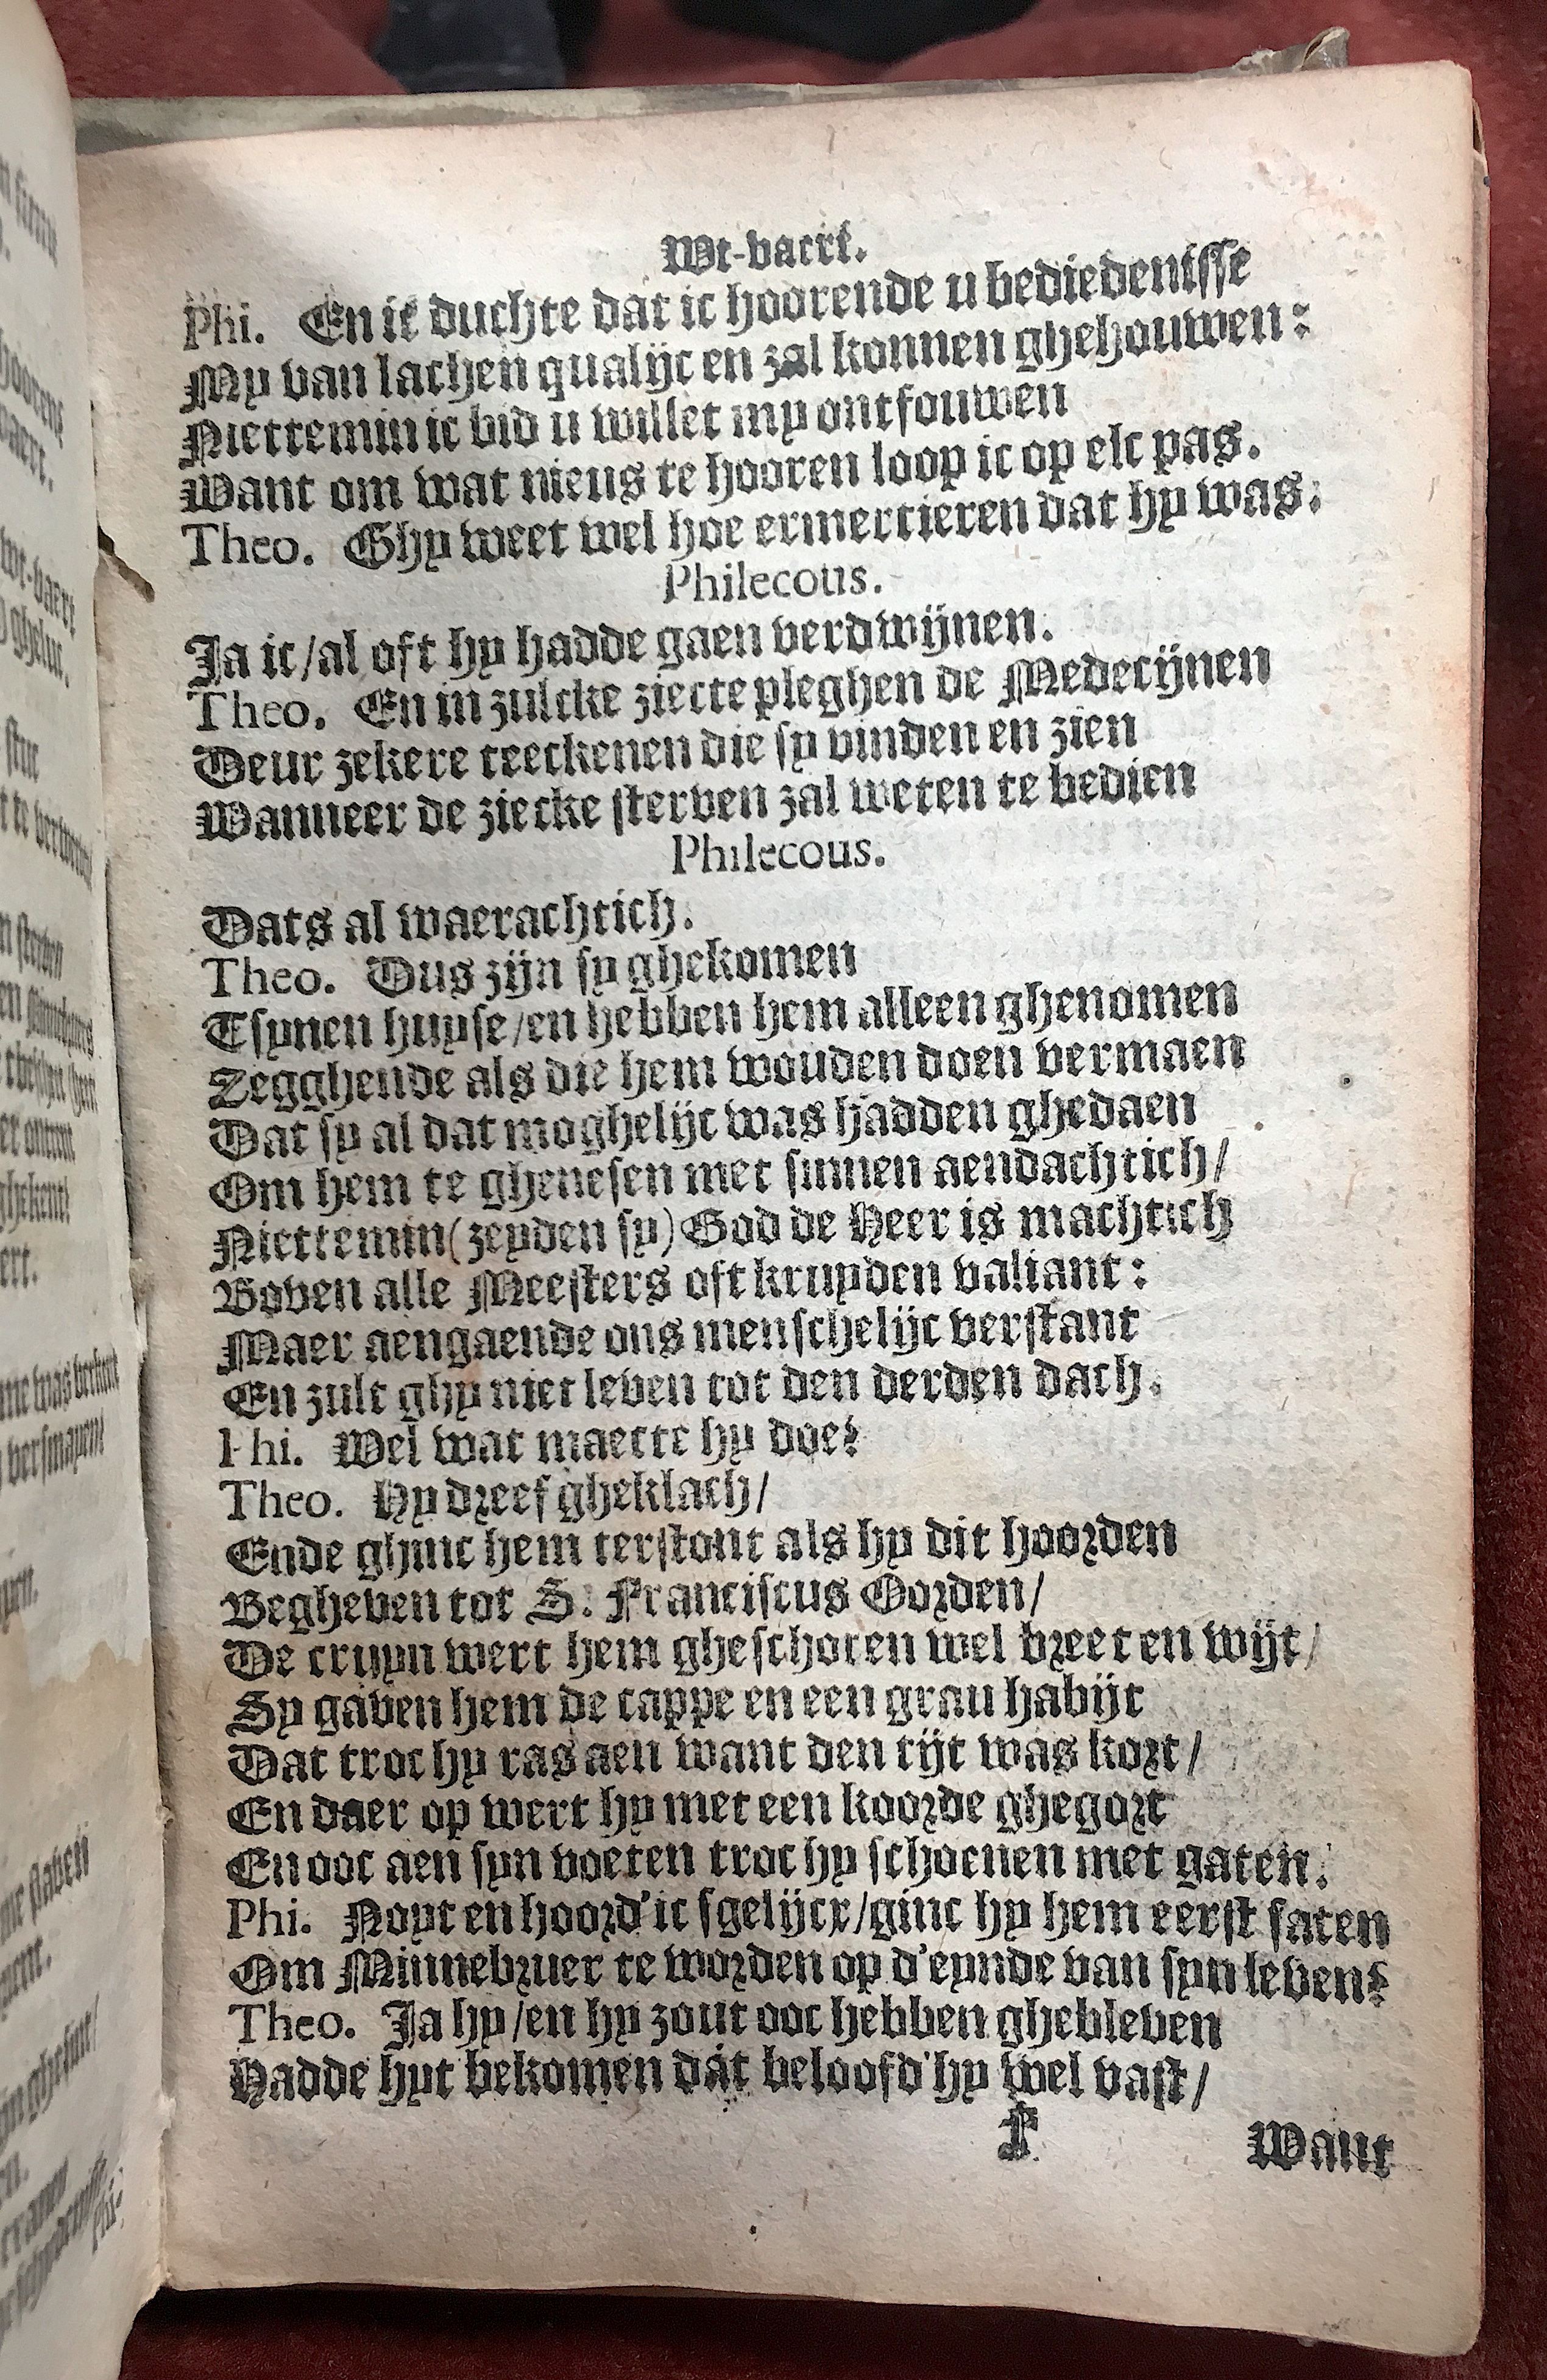 Wt-vaert.
Phi. En ic duchte dat ic hoorende u bediedenisse
My van lachen qualijc en zal konnen ghehouwen:
Niettemin ic bid u willet my ontfouwen
Want om wat nieus te hooren loop ic op elc pas.
Theo. Ghy weet wel hoe ermertieren dat hy was:
Philecous.
Ja ic/al oft hy hadde gaen verdwijnen.
Theo. En in zulcke ziecte pleghen de Medecijnen
Deur zekere teeckenen die sy vinden en zien
Wanneer de ziecke sterven zal weten te bedien
Philecous.
Dats al waerachtich.
Theo. Dus zijn sy ghekomen
Tsynen huyse/en hebben hem alleen ghenomen
Zegghende als die hem wouden doen vermaen
Dat sy al dat moghelijc was hadden ghedaen
Om hem te ghenesen met sinnen aendachtich/
Niettemin(zeyden sy)God de Heer is machtich
Boven alle Meesters oft kruyden valiant:
Maer aengaende ons menschelijc verstant
En zult ghy niet leven tot den derden dach.
Phi. Wel wat maecte hy doe?
Theo. Hy dreef gheklach/
Ende ghinc hem terstont als hy dit hoorden
Begheven tot S. Franciscus Oorden/
De cruyn wert hem gheschoren wel breet en wijt/
Sy gaven hem de cappe en een grau habijt
Dat troc hy ras aen want den tijt was kort/
En daer op wert hy met een koorde ghegort
En ooc aen syn voeten troc hy schoenen met gaten.
Phi. Noyt en hoord'ic sgelijcx/ginc hy hem eerst saten
Om Minnebruer te worden op d'eynde van syn leven?
Theo. Ja hy/en hy zout ooc hebben ghebleven
Hadde hyt bekomen dat beloofd'hy wel vast/
F
Want